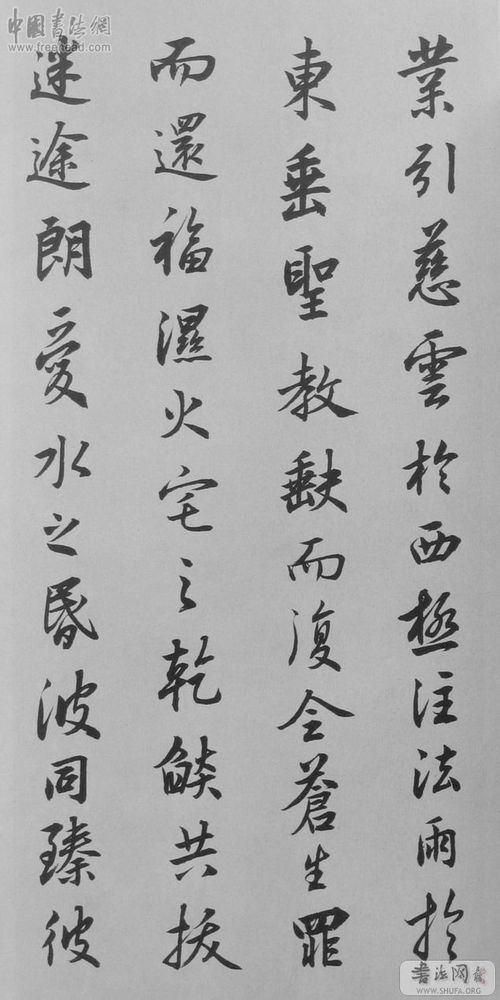 業引慈雲於西極注法雨於
東垂聖教缺而復全蒼生罪
而還福濕火宅之乾燄共拔
迷途朗愛水之昏波同臻彼
中國書法網
www.freehead.com
書法网
WWW.SHUFA.ORG